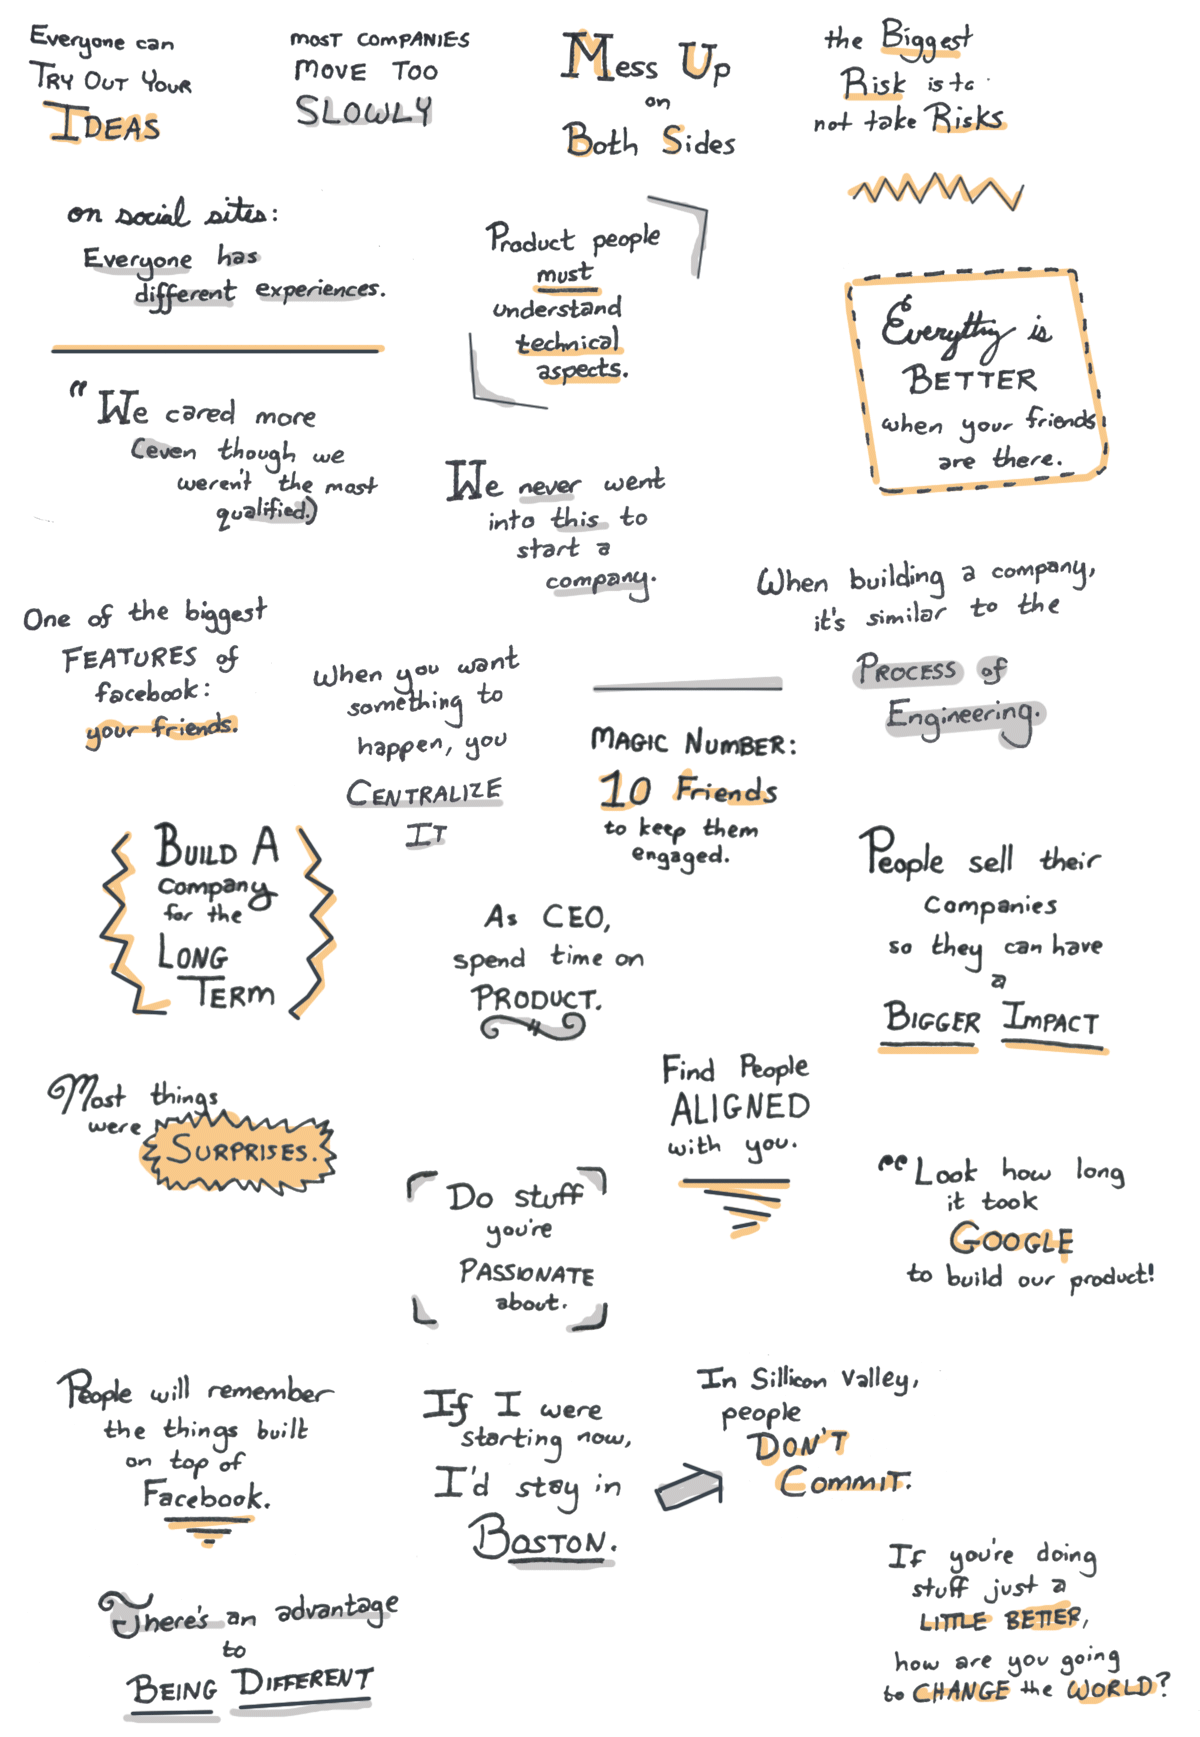 Everyone can
TRY OUT YOUR
IDEAS
MOST COMPANIES
MOVE TOO
SLOWLY
Mess Up
on
Both Sides
the Biggest
Risk is to
not take Risks
on social sites:
Everyone has
different experiences.
Product people
must
understand
technical
aspects.
Everything is
BETTER
when your friends
are there.
"We cared more
(even though we
weren't the most
qualified.)
We never went
into this to
start a
company.
When building a company,
it's similar to the
PROCESS of
Engineering.
One of the biggest
FEATURES of
facebook:
your friends.
When you want
something to
happen, you
CENTRALIZE
IT
MAGIC NUMBER:
10 Friends
to keep them
engaged.
BUILD A
company
for the
LONG
TERM
As CEO,
spend time on
PRODUCT.
People sell their
companies
so they can have
a
BIGGER IMPACT
Most things
were SURPRISES.
Find People
ALIGNED
with you.
Do stuff
you're
PASSIONATE
about.
"Look how long
it took
GOOGLE
to build our product!
People will remember
the things built
on top of
Facebook.
If I were
starting now,
I'd stay in
BOSTON.
In Sillicon Valley,
people
DON'T
COMMIT.
There's an advantage
to
BEING DIFFERENT
If you're doing
stuff just a
LITTLE BETTER,
how are you going
to CHANGE the WORLD?